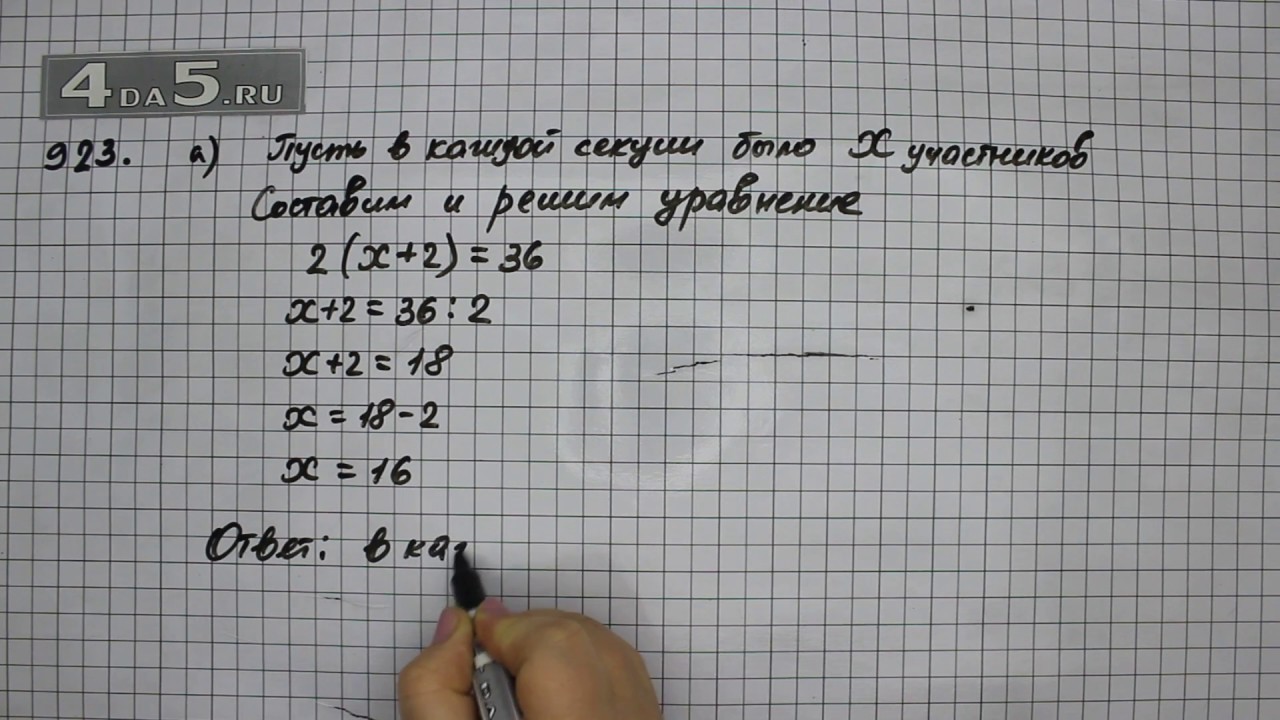 4DA5.RU
923. а) Пусть в каждой секции было x участников
Составим и решим уравнение
2(x+2)=36
x+2=36:2
x+2=18
x=18-2
x=16
Ответ: в каж